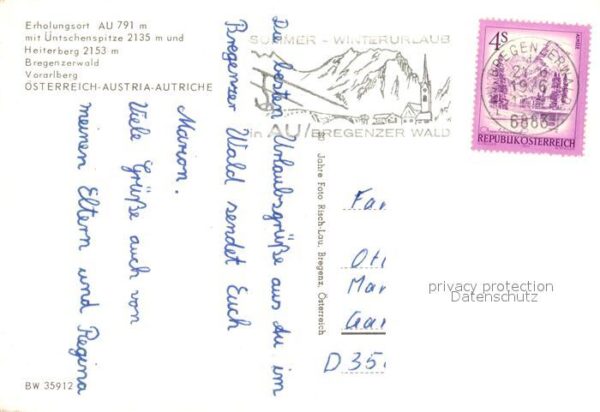 Erholungsort AU 791 m
mit Üntschenspitze 2135 m und
Heiterberg 2153 m
Bregenzerwald
Vorarlberg
ÖSTERREICH-AUSTRIA-AUTRICHE
SOMMER - WINTERURLAUB
in AU/BREGENZER WALD
4S
REPUBLIK ÖSTERREICH
BREGENZERW
1976
6883
Die besten Urlaubsgrüße aus Au im
Bregenzer Wald sendet Euch
Marion.
Viele Grüße auch von
meinen Eltern und Regina
Jahre Foto Risch-Lau, Bregenz, Österreich
Fam
Ott
Mar
Gar
D 35
privacy protection
Datenschutz
BW 35912